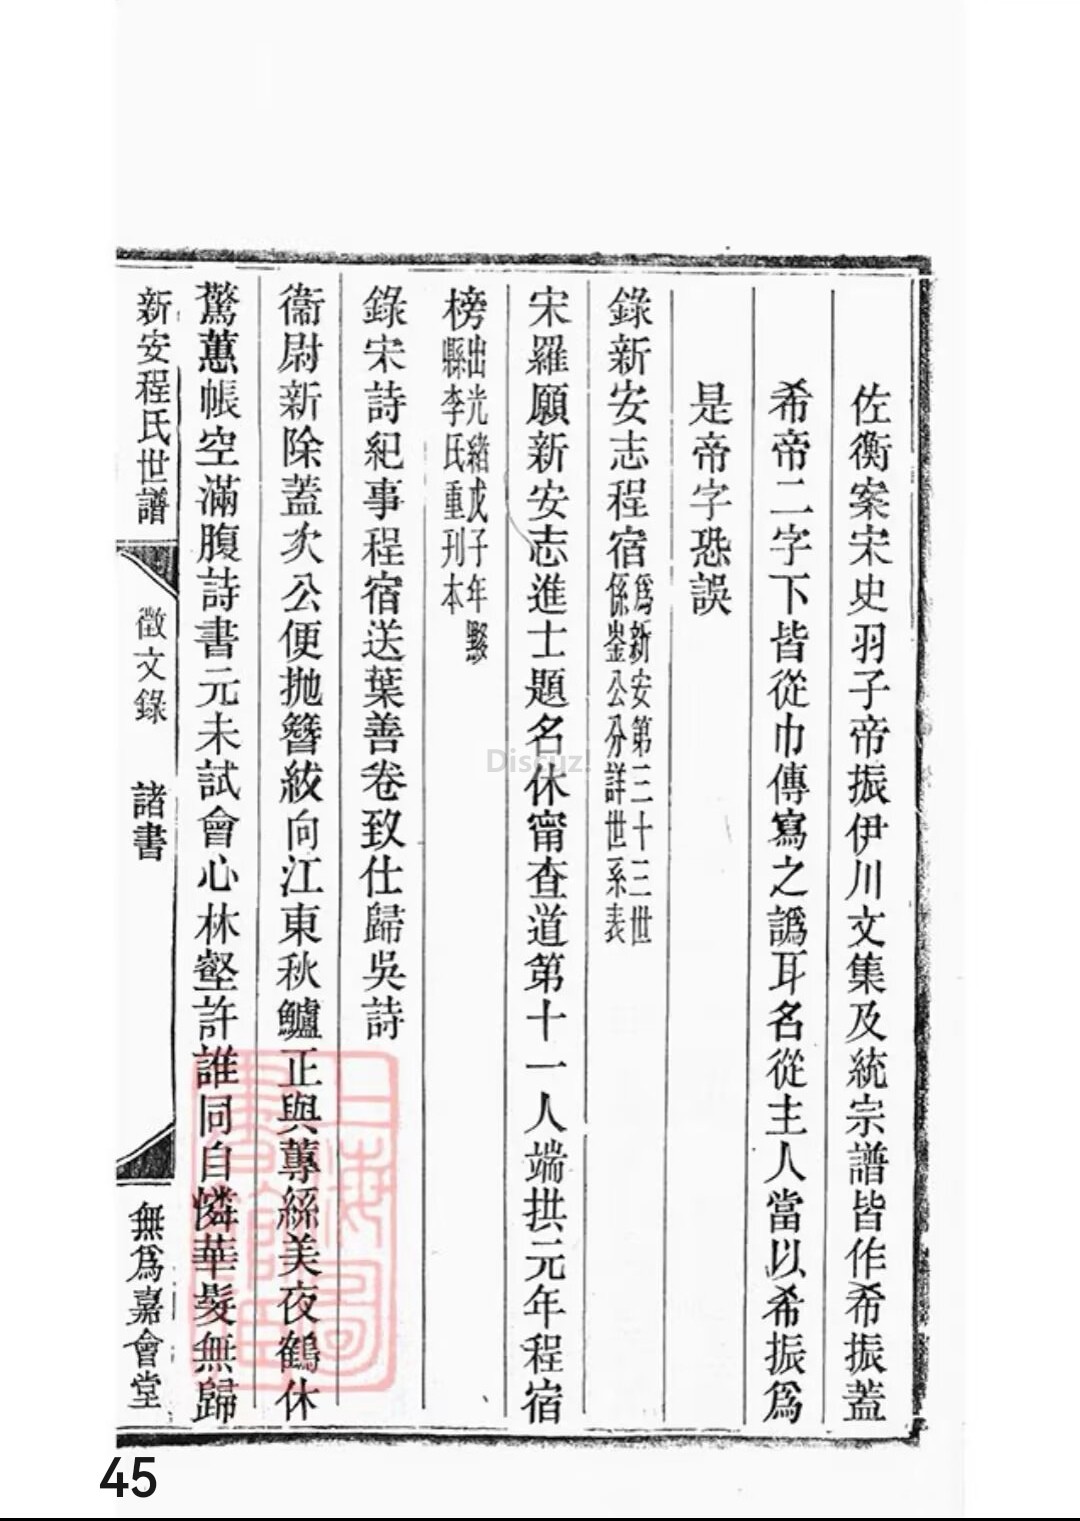 佐衡案宋史羽子帝振伊川文集及統宗譜皆作希振蓋
希帝二字下皆從巾傳寫之譌耳名從主人當以希振爲
是帝字恐誤
錄新安志程宿爲新安第三十三世
係崟公分詳世系表
宋羅願新安志進士題名休甯查道第十一人端拱元年程宿
榜出光緒戊子年黟
縣李氏重刋本
錄宋詩紀事程宿送葉善卷致仕歸吳詩
衞尉新除蓋次公便抛簪紱向江東秋鱸正與蓴絲美夜鶴休
驚蕙帳空滿腹詩書元未試會心林壑許誰同自憐華髮無歸
新安程氏世譜 徵文錄 諸書 無爲嘉會堂
上海圖
書館藏
Discuz!
45